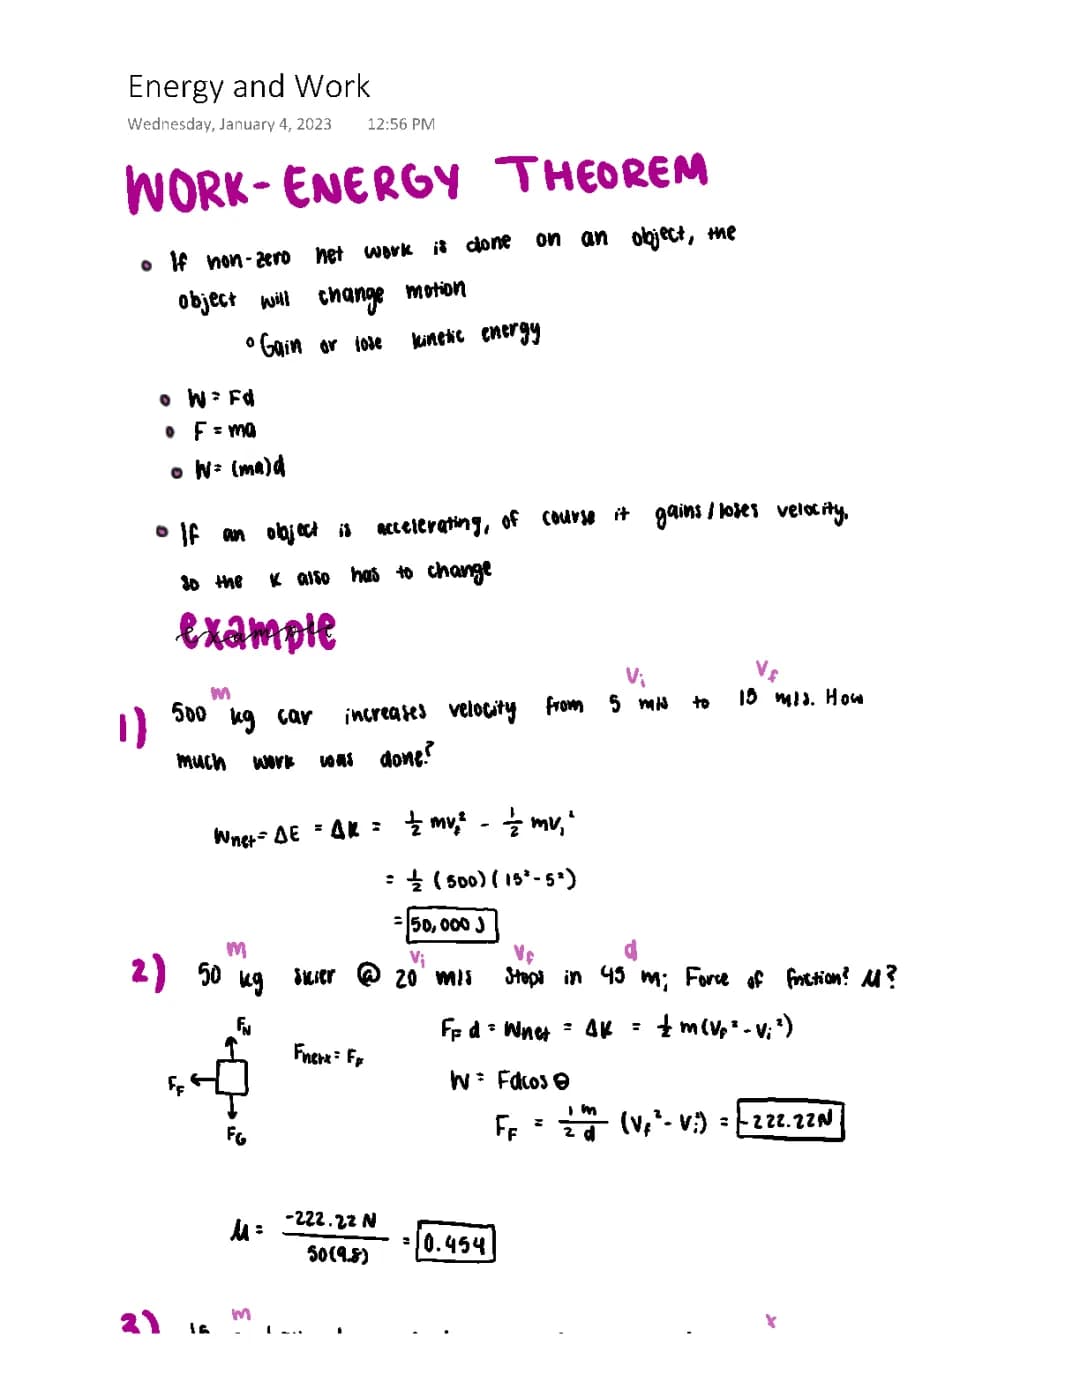 Energy and Work
Wednesday, January 4, 2023 12:56 PM
WORK-ENERGY THEOREM
• If non-zero net work is done on an object, the
object will change motion
° Gain or lose kinetic energy
• W = Fd
• F = ma
• W = (ma)d
• If an object is accelerating, of course it gains / loses velocity,
so the K also has to change
example
m Vi Vf
1) 500 kg car increases velocity from 5 m/s to 15 m/s. How
much work was done?
Wnet = ΔE = ΔK = ½ mvf² - ½ mvi²
= ½ (500)(15² - 5²)
= 50,000 J
m Vi Vf d
2) 50 kg skier @ 20 m/s stops in 45 m; Force of friction? μ?
FN
FF
FG
Fnetx = FF
FF d = Wnet = ΔK = ½ m(Vf² - Vi²)
W = Fdcos θ
FF = 1/2 m/d (Vf² - Vi²) = -222.22N
μ = -222.22 N / 50(9.8) = 0.454
m x
3)